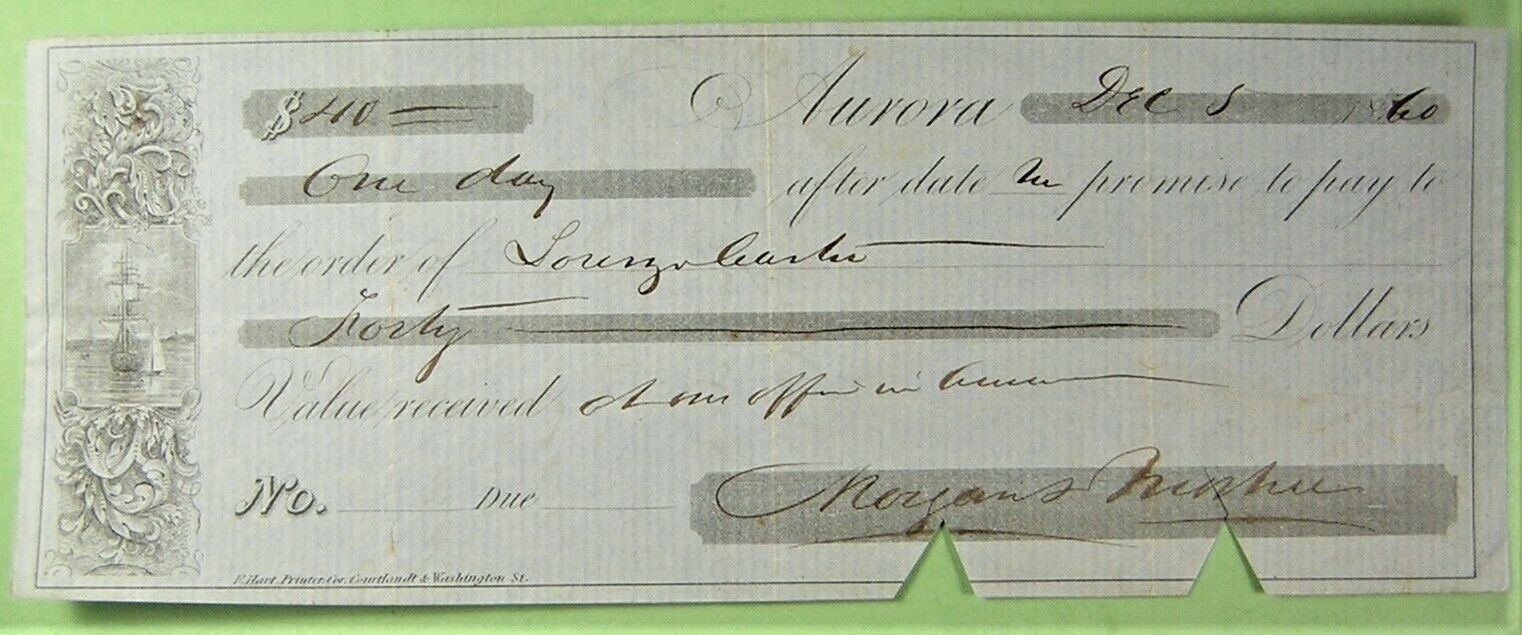 $40 Aurora Dec 1860
One day after date we promise to pay to
the order of Lorenzo Carter
Forty Dollars
Value received at our office in
No. Due Morgans
E. Hart, Printer, Cor. Courtlandt & Washington St.